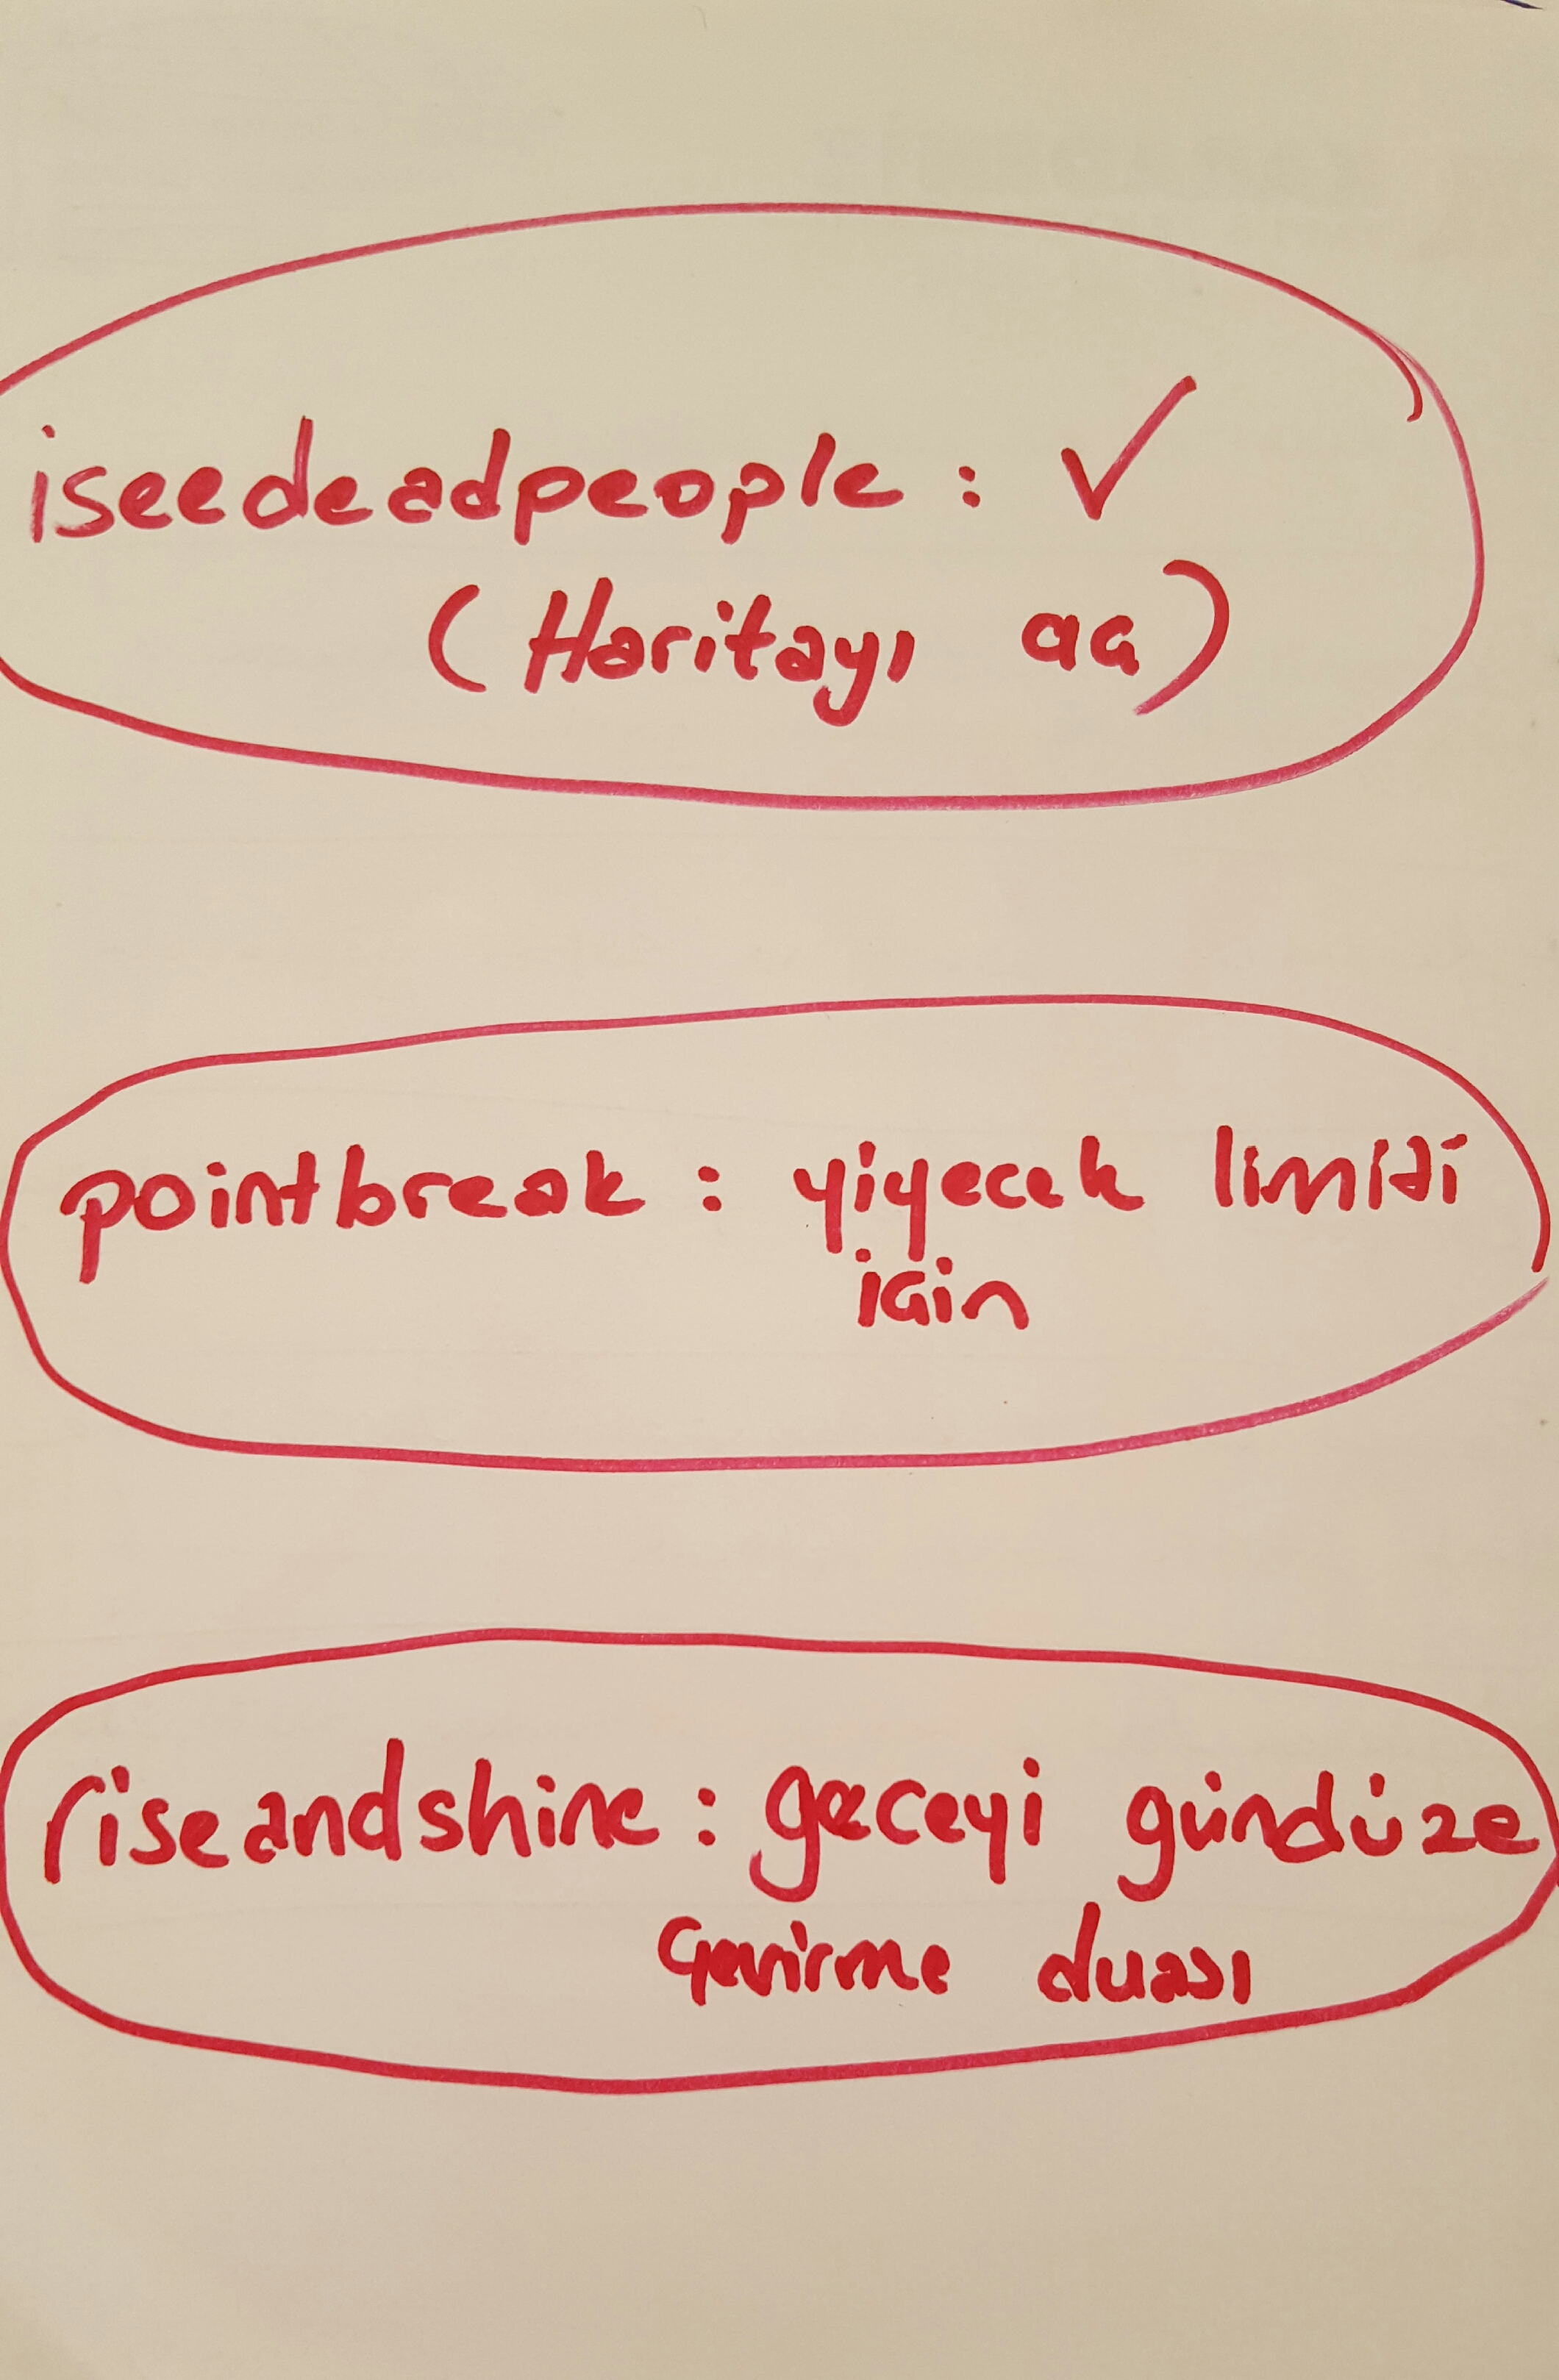 iseedeadpeople : ✓
(Haritayı aç)
pointbreak : yiyecek limidi
için
riseandshine : geceyi gündüze
çevirme duası